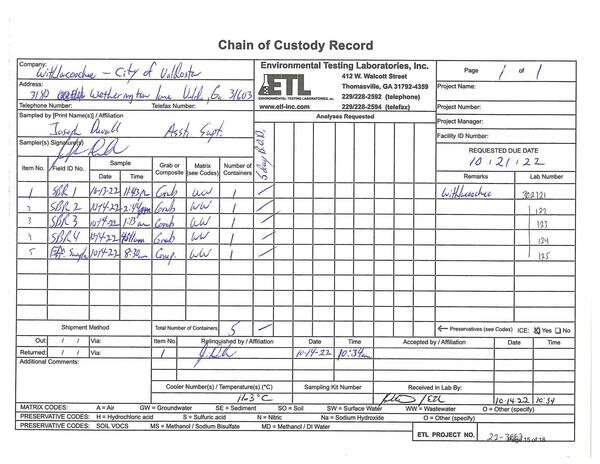 Chain of Custody Record
Company: Withlacoochee - City of Valdosta
Environmental Testing Laboratories, Inc.
ETL
ENVIRONMENTAL TESTING LABORATORIES, INC.
412 W. Walcott Street
Thomasville, GA 31792-4359
229/228-2592 (telephone)
229/228-2594 (telefax)
www.etl-inc.com
Page 1 of 1
Address: 3180 Wetherington Lane Ga, 31603
Project Name:
Telephone Number: Telefax Number:
Analyses Requested
Project Manager:
Sampled by [Print Name(s)] / Affiliation
Joseph Duvall Asst. Supt.
Facility ID Number:
Sampler(s) Signature(s)
5 day B.O.D.
REQUESTED DUE DATE
10/21/22
Item No. Field ID No. Sample Date Time Grab or Composite Matrix (see Codes) Number of Containers Remarks Lab Number
1 SBR 1 10-13-22 11:43 Grab WW 1 Withlacoochee 302121
2 SBR 2 10-14-22 Grab WW 1 122
3 SBR 3 10-14-22 Grab WW 1 123
4 SBR 4 10-14-22 Grab WW 1 124
5 Eff. 10-14-22 8:30am Comp. WW 1 125
Shipment Method Total Number of Containers 5 ← Preservatives (see Codes) ICE: ☒ Yes ☐ No
Out: / / Via: Item No. Relinquished by / Affiliation Date Time Accepted by / Affiliation Date Time
Returned: / / Via: 1 10-14-22 10:34am
Additional Comments:
Cooler Number(s) / Temperature(s) (°C) Sampling Kit Number Received in Lab By:
/ ETL 10-14-22 10:34
MATRIX CODES: A = Air GW = Groundwater SE = Sediment SO = Soil SW = Surface Water WW = Wastewater O = Other (specify)
PRESERVATIVE CODES: H = Hydrochloric acid S = Sulfuric acid N = Nitric Na = Sodium Hydroxide O = Other (specify)
PRESERVATIVE CODES: SOIL VOCS MS = Methanol / Sodium Bisulfate MD = Methanol / DI Water
ETL PROJECT NO. Page 15 of 18